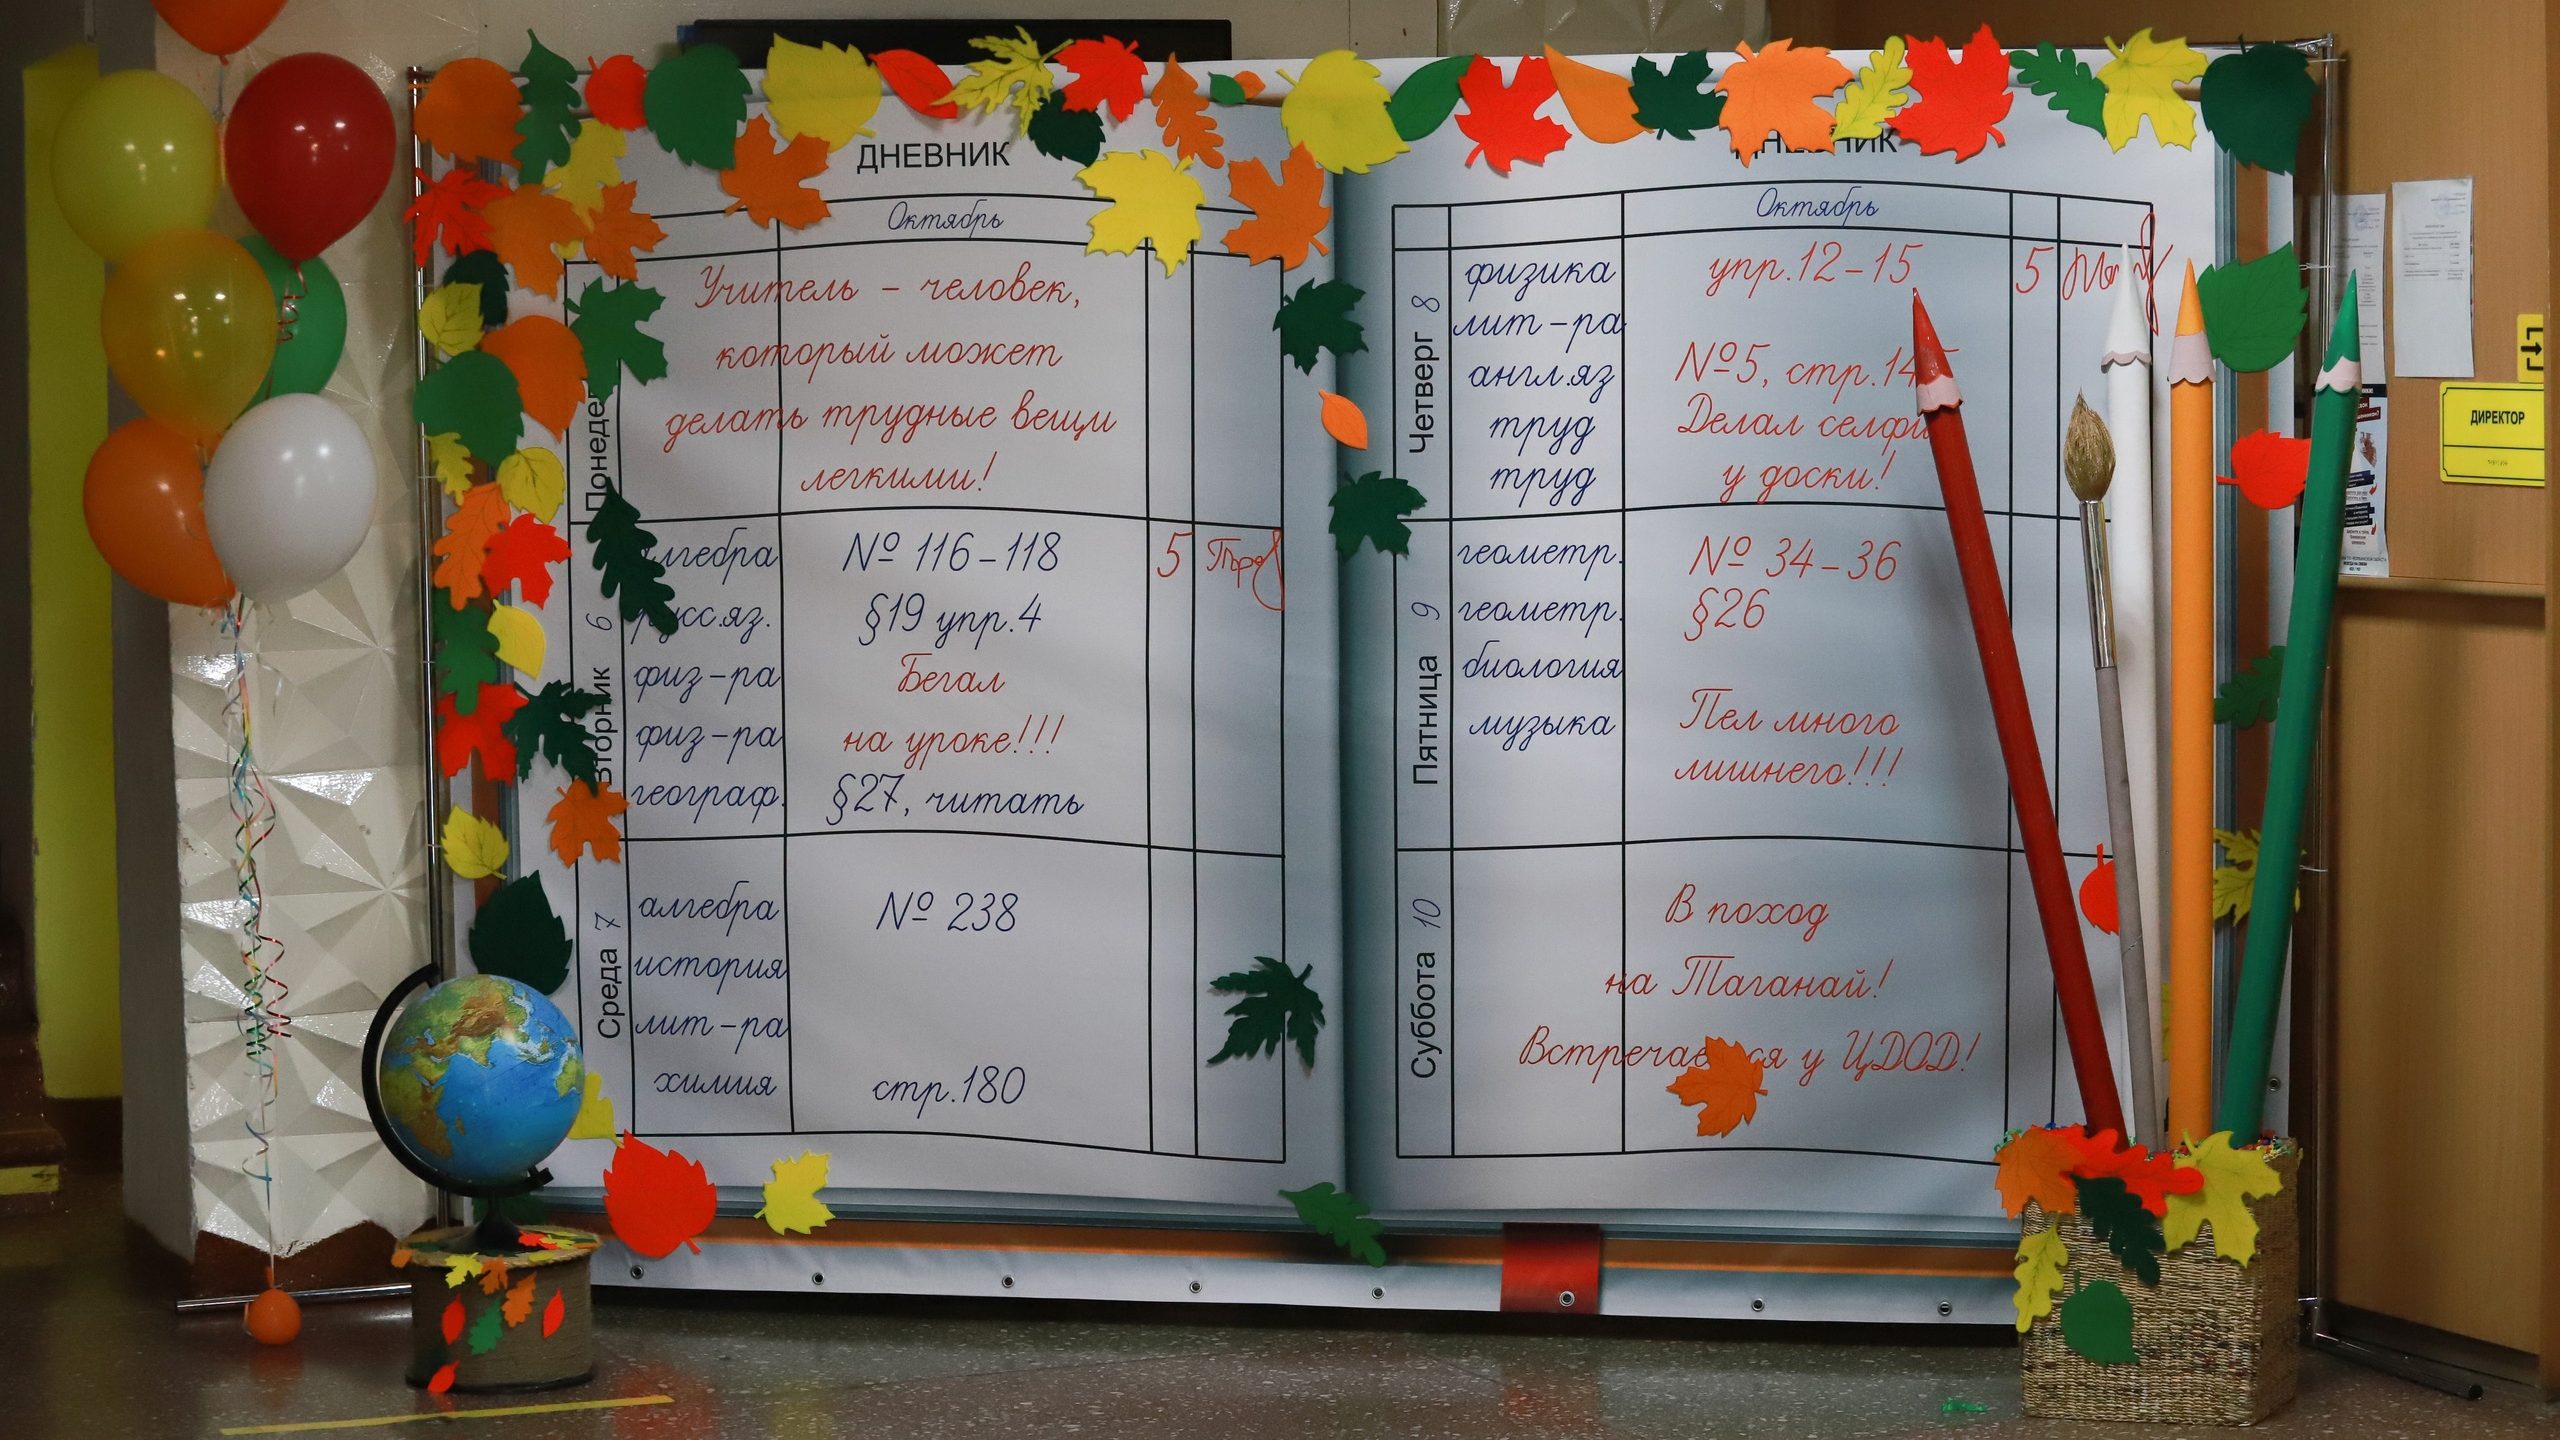 ДНЕВНИК
Октябрь
Учитель – человек,
который может
делать трудные вещи
легкими!
Вторник 6
№ 116–118 5
русс.яз. §19 упр.4
физ-ра Бегал
физ-ра на уроке!!!
географ. §27, читать
Среда 7
алгебра № 238
история
лит-ра
химия стр.180
ДНЕВНИК
Октябрь
Четверг 8
физика упр.12–15 5
лит-ра
англ.яз №5, стр.14
труд Делал селфи
труд у доски!
Пятница 9
геометр. № 34–36
геометр. §26
биология
музыка Пел много
лишнего!!!
Суббота 10
В поход
на Таганай!
у ЦДОД!
ДИРЕКТОР